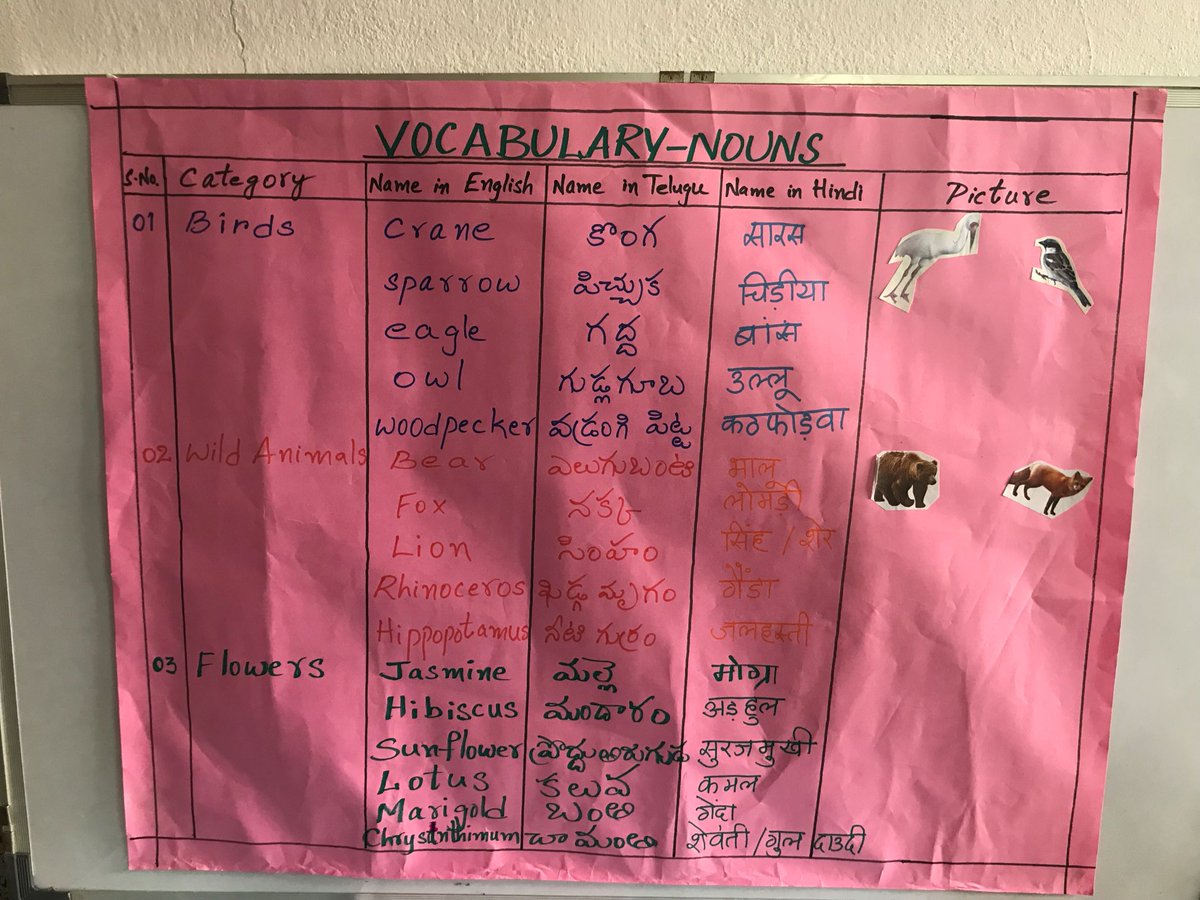 VOCABULARY-NOUNS
S.No. Category Name in English Name in Telugu Name in Hindi Picture
01 Birds Crane కొంగ सारस
sparrow పిచ్చుక चिड़ीया
eagle గద్ద बांस
owl గుడ్లగూబ उल्लू
woodpecker వడ్రంగి పిట్ట कठफोड़वा
02 Wild Animals Bear ఎలుగుబంటి भालू
Fox నక్క लोमड़ी
Lion సింహం सिंह / शेर
Rhinoceros ఖడ్గ మృగం गैंडा
Hippopotamus నీటి గుర్రం जलहस्ती
03 Flowers Jasmine మల్లె मोग्रा
Hibiscus మందారం अड़हुल
Sunflower ప్రొద్దుతిరుగుడు सुरजमुखी
Lotus కలువ कमल
Marigold బంతి गेंदा
Chrysinthimum చామంతి शेवंती / गुल दाउदी